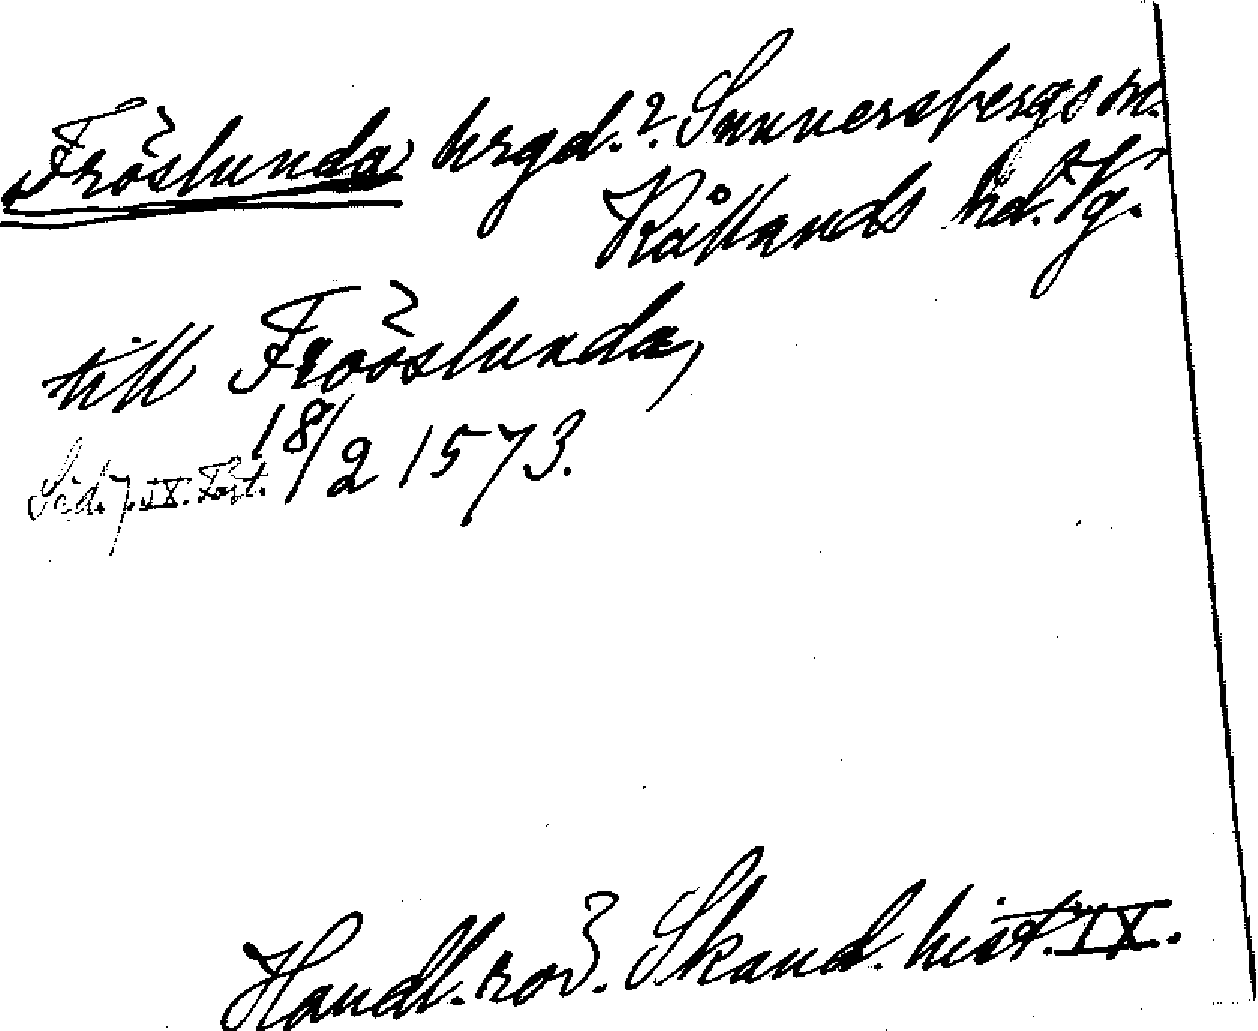 Fröslunda hrgd.? Sunnersbergs sn.
Kållands hd. Vg.
till Fröoslunda,
18/2 1573.
Handl. rör. Skand. hist. IX.